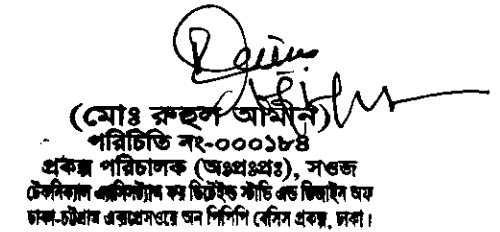 (মোঃ রুহুল আমীন)
পরিচিতি নং-০০০১৮৪
প্রকল্প পরিচালক (অঃপ্রঃপ্রঃ), সওজ
টেকনিক্যাল এ্যাসিসট্যান্স ফর ডিটেইল্ড স্টাডি এন্ড ডিজাইন অফ
ঢাকা-চট্টগ্রাম এক্সপ্রেসওয়ে অন পিপিপি বেসিস প্রকল্প, ঢাকা।